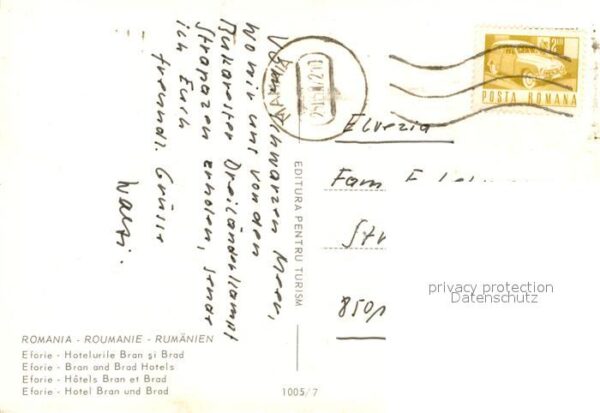 Vom Schwarzen Meer,
wo wir uns von den
Bukarester Dreiländerkampf
Strapazen erholen, sende
ich Euch
freundl. Grüsse
Walti.
POSTA ROMANA
Elvezia
Fam
Str
850
EDITURA PENTRU TURISM
privacy protection
Datenschutz
ROMANIA - ROUMANIE - RUMÄNIEN
Eforie - Hotelurile Bran şi Brad
Eforie - Bran and Brad Hotels
Eforie - Hôtels Bran et Brad
Eforie - Hotel Bran und Brad
1005/7